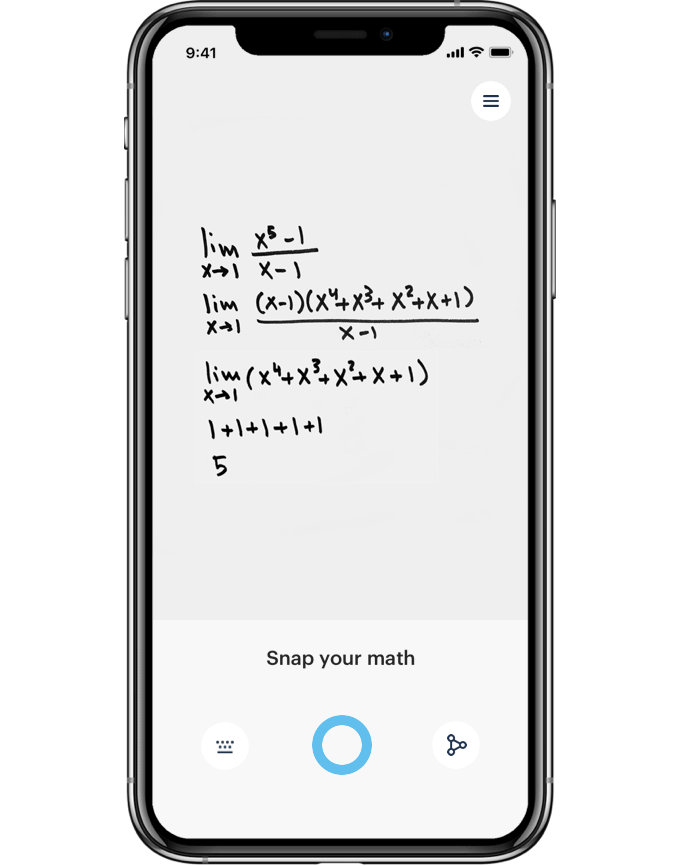 9:41
lim x→1 (x⁵ - 1)/(x - 1)
lim x→1 ((x-1)(x⁴+x³+x²+x+1))/(x-1)
lim x→1 (x⁴+x³+x²+x+1)
1+1+1+1+1
5
Snap your math